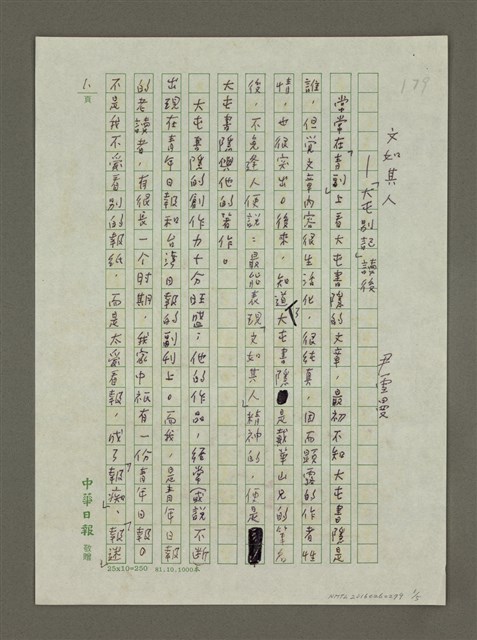 179
文如其人
—「大屯別記」讀後
尹雪曼
常常在「青副」上看大屯書隱的文章,最初不知大屯書隱是
誰,但覺文章內容很生活化,很純真,因而顯露的作者性
情,也很突出。後來,知道了大屯書隱是戴華山兄的筆名
後,不免逢人便說:最能表現「文如其人」精神的,便是
大屯書隱與他的著作。
大屯書隱的創作力十分旺盛;他的作品,經常(或說不斷)
出現在青年日報和台灣日報的副刊上。而我,是青年日報
的老讀者,有很長一个時期,我家中祇有一份青年日報。
不是我不愛看別的報紙,而是太愛看報,成了「報痴」、「報迷」
1.頁
中華日報 敬贈
25x10=250 81.10.1000本